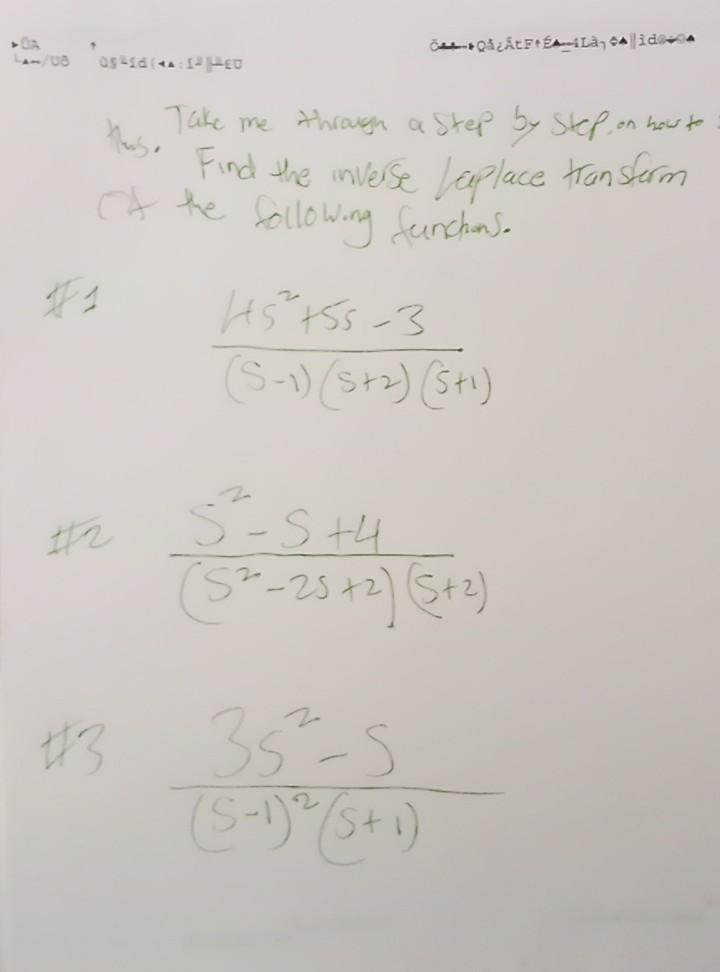 Take me through a step by step, on how to
thus. Find the inverse Laplace transform
Of the following functions.
#1
4s²+5s-3
(s-1)(s+2)(s+1)
#2
s²-s+4
(s²-2s+2)(s+2)
#3
3s²-s
(s-1)²(s+1)